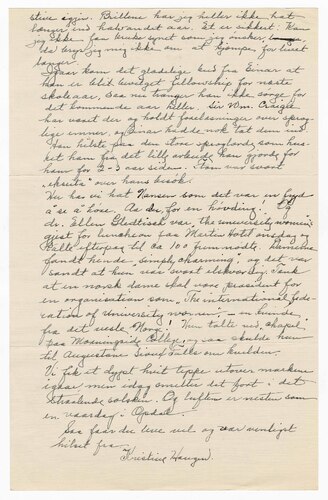 stive igjen. Brillene har jeg heller ikke hat
lenger end halvandet aar. Et er sikkert: Kan
jeg ikke faa bruke synet som jeg ønsker,
da bryr jeg mig ikke om at kjempe for livet
længer.
Igaar kom det gladelige bud fra Einar at
han er blit tildelt Fellowship for næste
skoleaar. Saa nu trænger han ikke sørge for
det kommende aar heller. Sir Wm. Craigie
har været der og holdt forelæsninger over sprog-
lige emner, og Einar hadde nok tat dem ind.
Han hilste paa den store sprogmand som hus-
ket ham fra det lille arbeide han gjorde for
ham for 2-3 aar siden. Tom var svært
over hans besøk.
Her har vi hat Nansen som det var en lyd
å se å høre. Aa for en høvding! Og
dr. Ellen Gleditsch over. The university women's
gjest for luncheon paa Martin Hotel onsdag og
stilte eftopaa til ca 100 fremmødte. Damerne
fandt hende "simply charming" og det var
sandt at hun var svært elskværdig. Tænk
at en norsk dame skal være president for
en organisation som "The international fede-
ration of University women" — en kvinde
fra det vesle "Norge"! Hun talte ved "chapel"
paa Morningside College, og saa skulde hun
til Augustana Sioux Falls om kvelden.
Vi fik et dypt hvitt teppe utover markene
igaar men idag smelter det fort i det
straalende solskin. Og luften er nesten som
en vaardag i Opdal.
Saa faar du leve vel og vær venligst
hilset fra
Kristine Haugen.